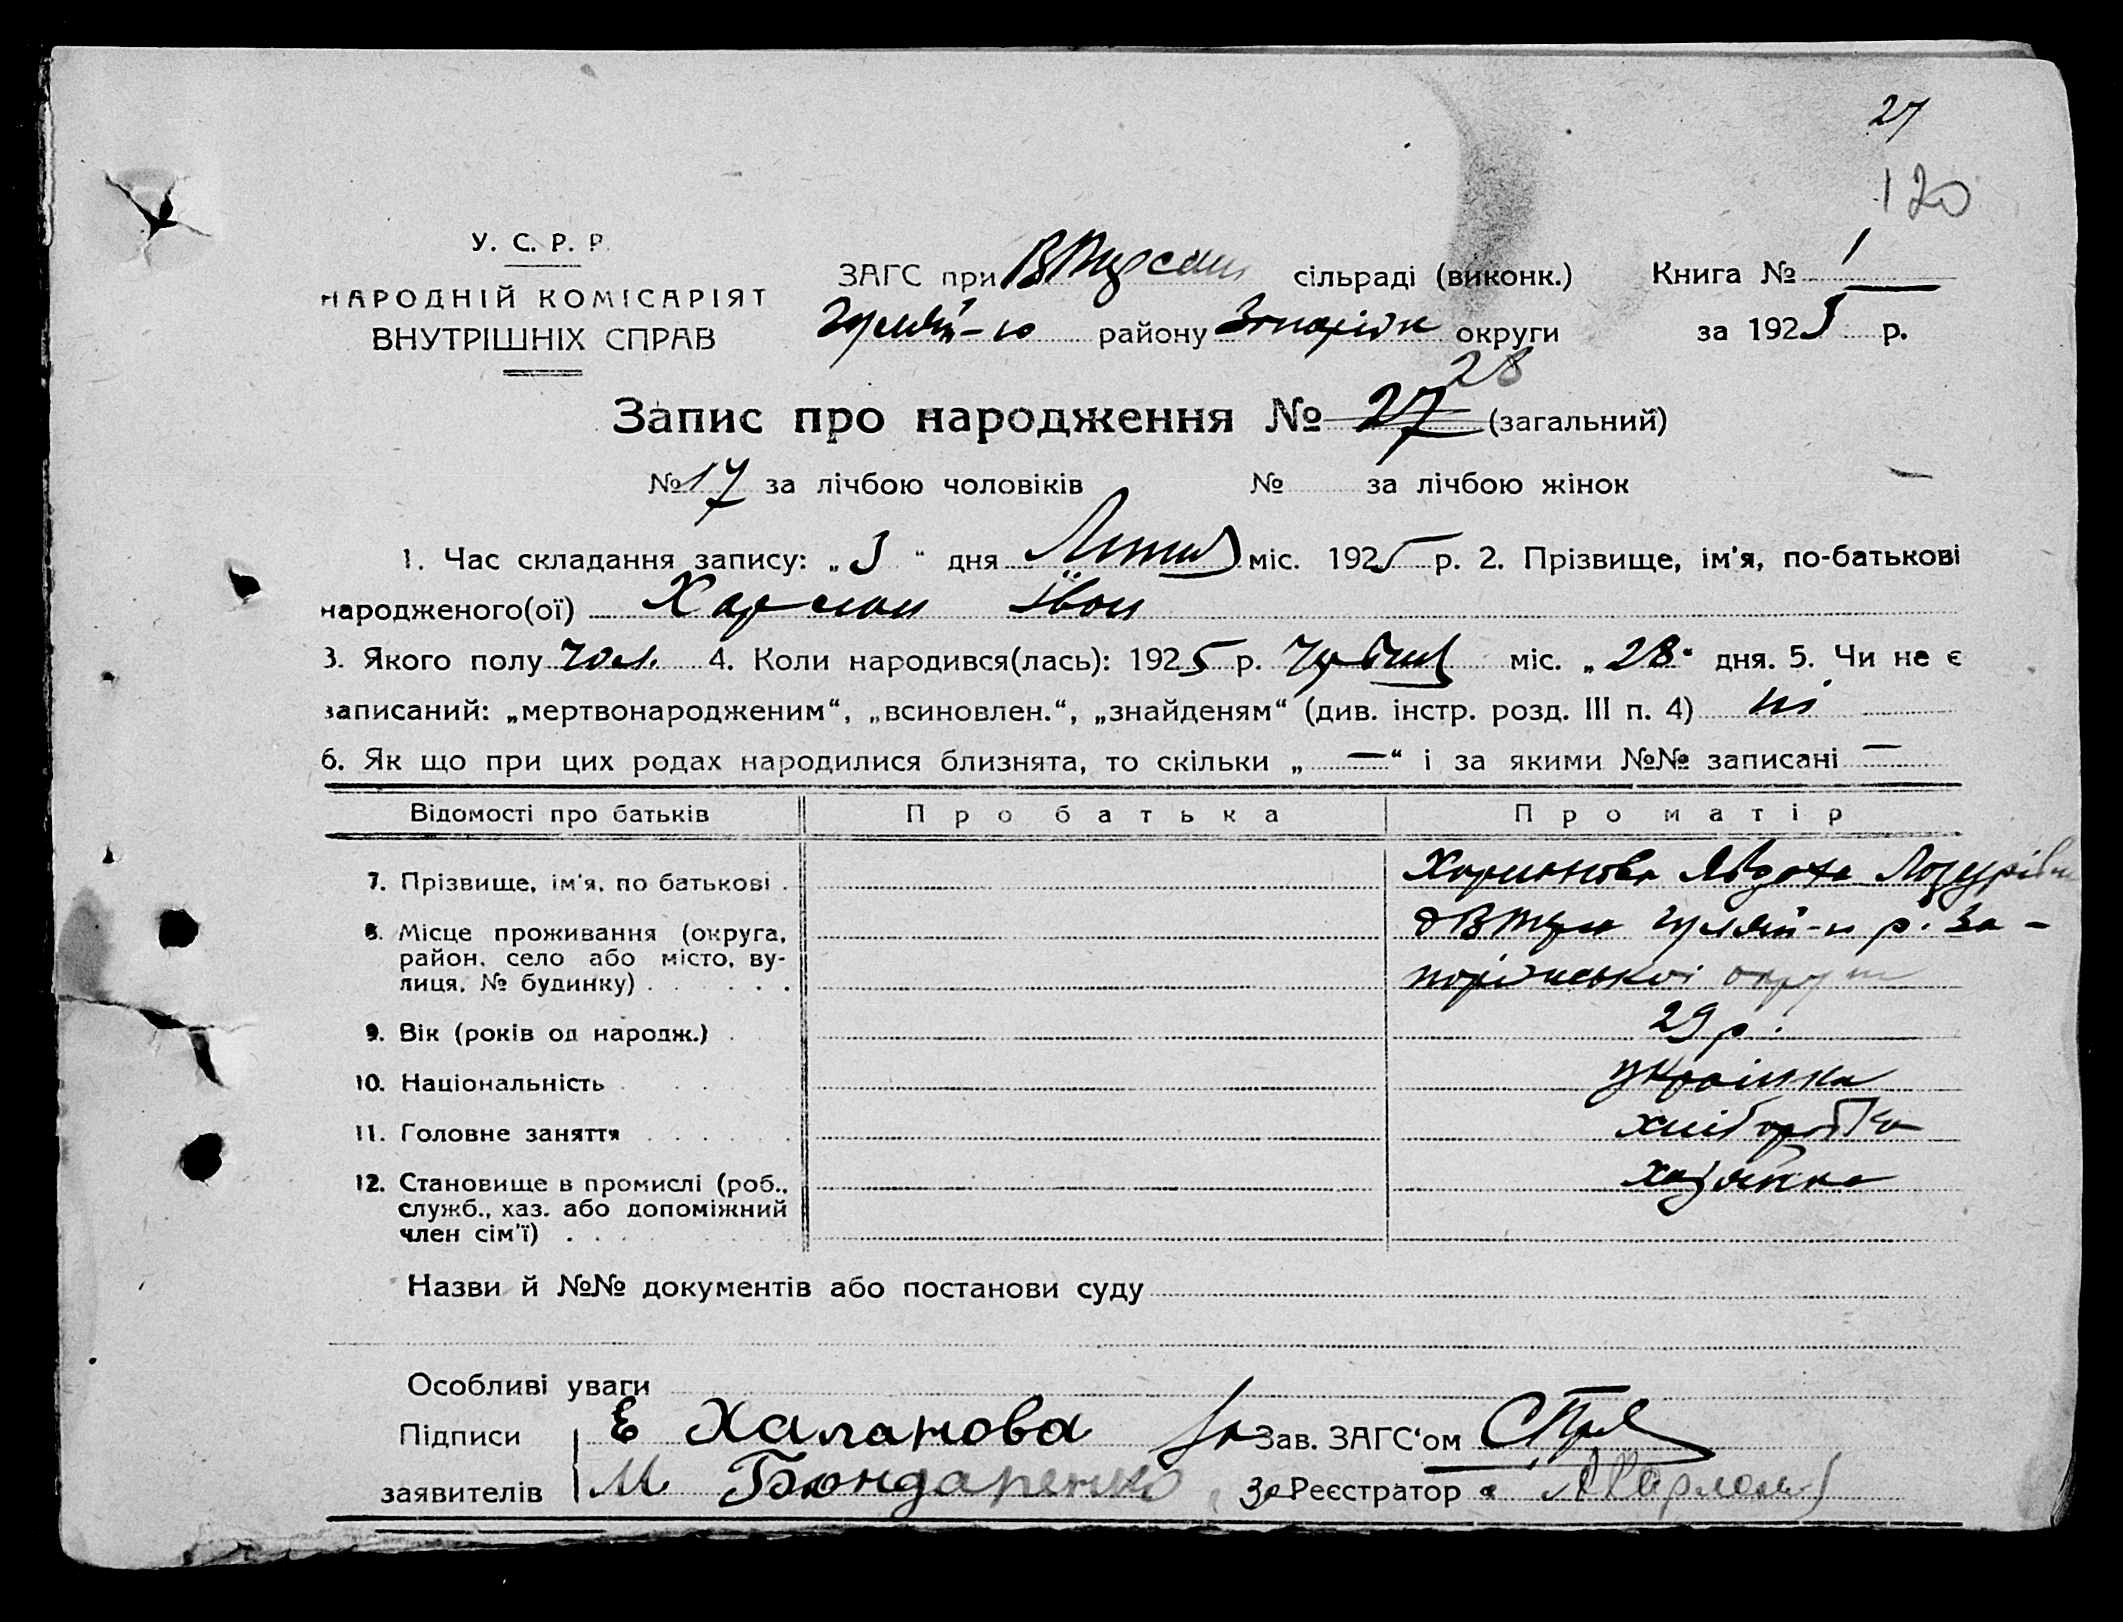 27
120
У. С. Р. Р.
НАРОДНІЙ КОМІСАРІЯТ
ВНУТРІШНІХ СПРАВ
ЗАГС при сільраді (виконк.) Книга № 1
Гуляй- району округи за 1925 р.
28
Запис про народження № 27 (загальний)
№ 17 за лічбою чоловіків № за лічбою жінок
1. Час складання запису: „3“ дня міс. 1925 р. 2. Прізвище, ім'я, по-батькові
народженого(ої) Іван
3. Якого полу чол. 4. Коли народився(лась): 1925 р. міс. „28“ дня. 5. Чи не є
записаний: „мертвонародженим“, „всиновлен.“, „знайденям“ (див. інстр. розд. III п. 4) ні
6. Як що при цих родах народилися близнята, то скільки „—“ і за якими №№ записані —
Відомості про батьків Про батька Про матір
7. Прізвище, ім'я, по батькові . Явдоха
8. Місце проживання (округа, гуляй-п р. За-
район, село або місто, ву-
лиця, № будинку) . . . . . . порізської округи
9. Вік (років од народж.) . 29 р.
10. Національність українка
11. Головне заняття хліборобка
12. Становище в промислі (роб., хазяйка
служб., хаз. або допоміжний
член сім'ї) . . . .
Назви й №№ документів або постанови суду
Особливі уваги
Підписи Е Халанова За Зав. ЗАГС‘ом
заявителів М Бондаренко За Реєстратор